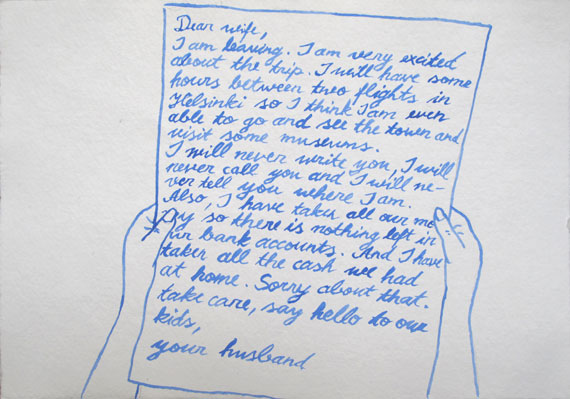 Dear wife,
I am leaving. I am very excited
about the trip. I will have some
hours between two flights in
Helsinki so I think I am even
able to go and see the town and
visit some museums.
I will never write you, I will
never call you and I will ne-
ver tell you where I am.
Also, I have taken all our mo
ny so there is nothing left in
ur bank accounts. And I have
taken all the cash we had
at home. Sorry about that.
take care, say hello to our
kids,
your husband